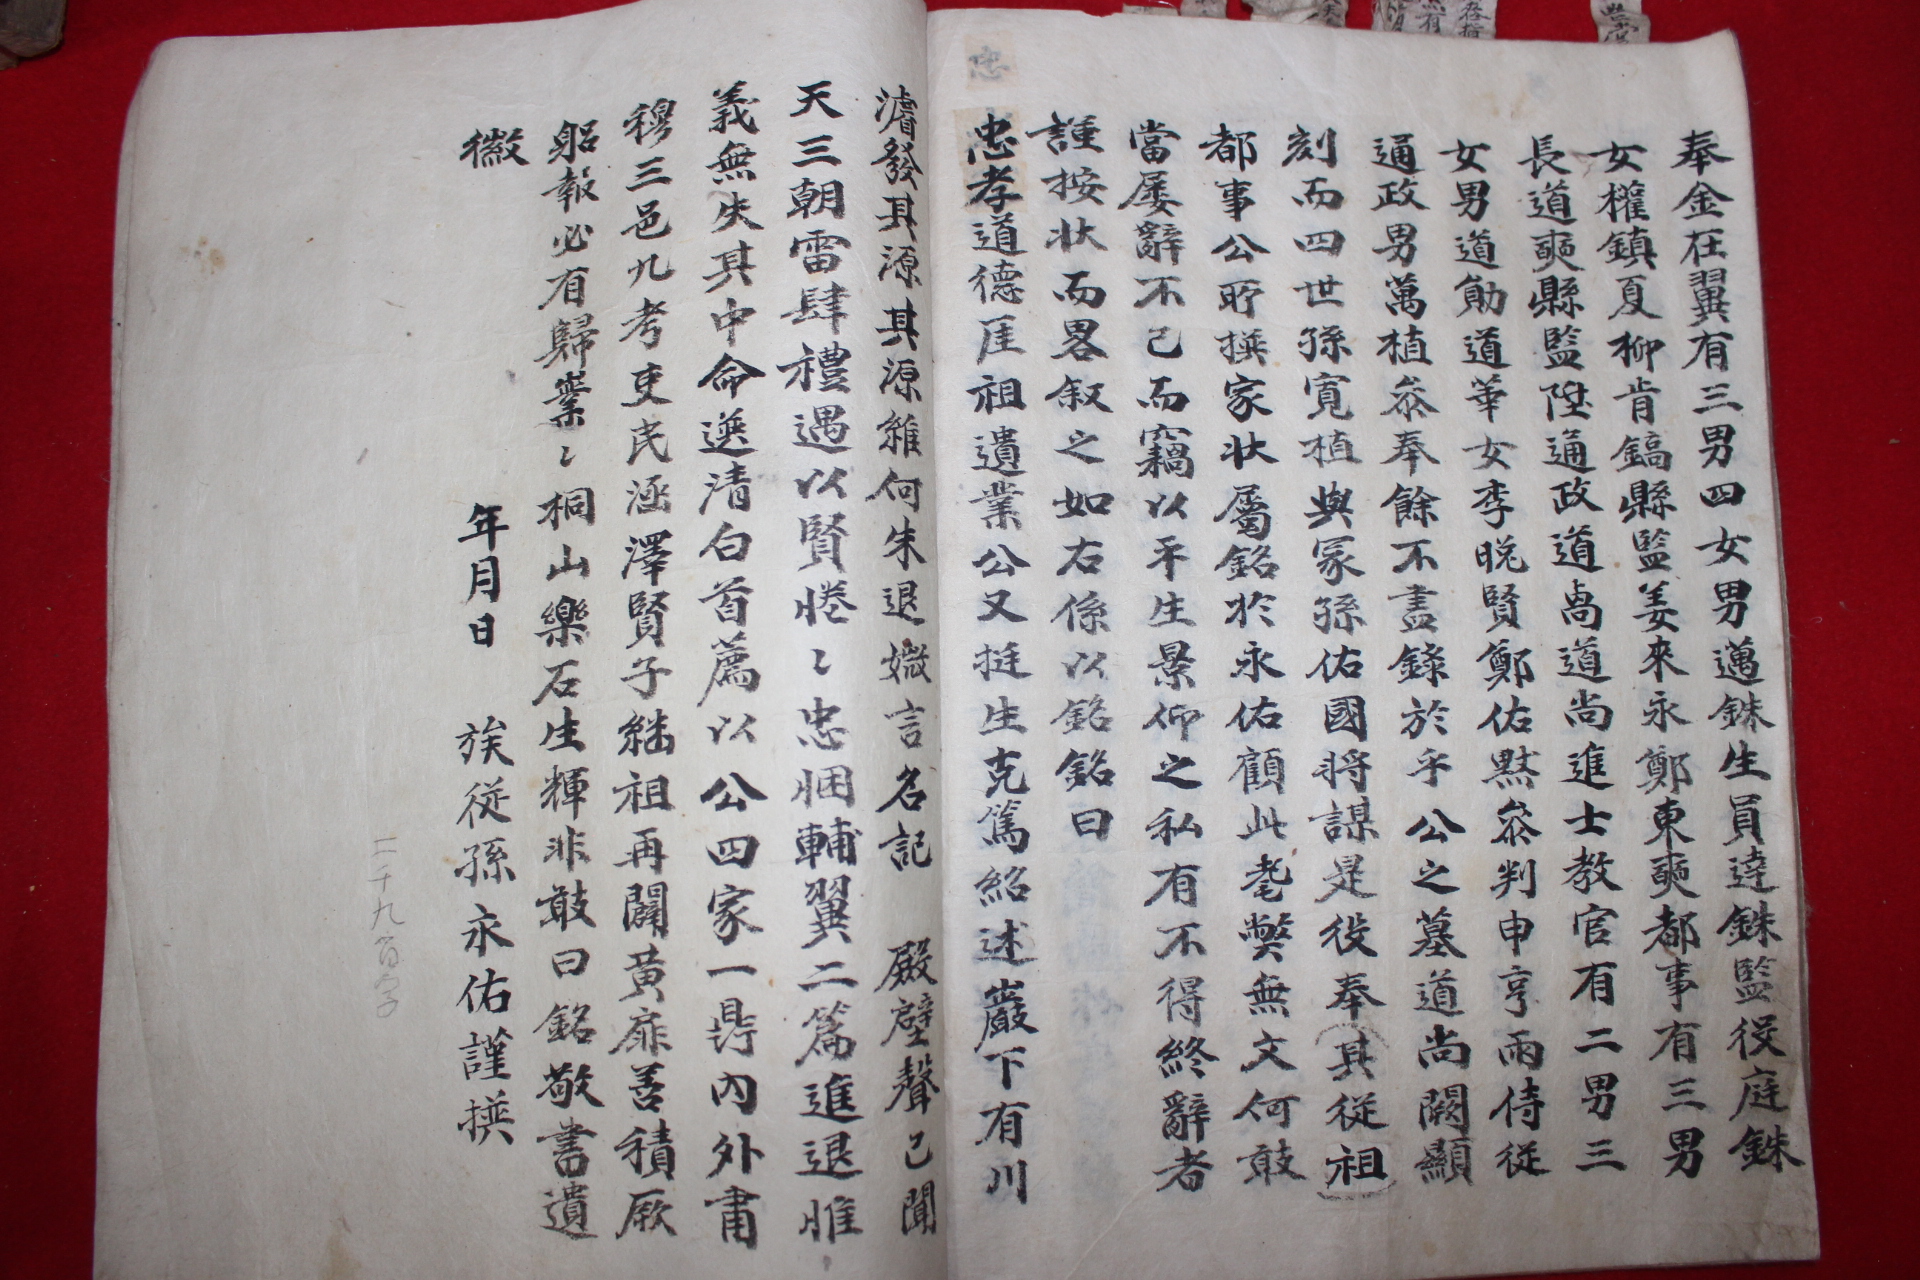 奉金在翼有三男四女男邁銖生員達銖監役庭銖
女權鎮夏柳肯鎬縣監姜來永鄭東奭都事有三男
長道奭縣監陞通政道卨道尚進士教官有二男三
女男道勛道華女李晚賢鄭佑黙叅判申亨雨侍從
通政男萬植叅奉餘不盡錄於乎公之墓道尚闕顯
刻而四世孫寬植與冢孫佑國將謀是役奉其從祖
都事公所撰家狀屬銘於永佑顧此耄獘無文何敢
當屡辭不已而竊以平生景仰之私有不得終辭者
謹按狀而畧叙之如右係以銘銘曰
忠
忠孝道德厓祖遺業公又挺生克篤紹述巖下有川
濬發其源其源維何朱退媺言名記 殿壁聲已聞
天三朝雷肆禮遇以賢惓〻忠悃輔翼二篇進退惟
義無失其中命選清白首薦以公四家一鼎內外甫
穆三邑九考吏民涵澤賢子継祖再闢黃扉善積厥
躬報必有歸業〻桐山樂石生輝非敢曰銘敬書遺
徽
年月日 族從孫永佑謹撰
二千九百字